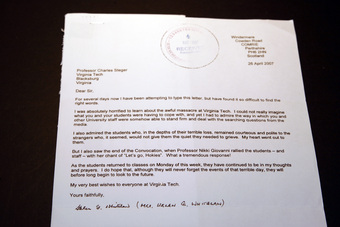 Windermere
Cowden Road
COMRIE
Perthshire
PH6 2HN
Scotland
26 April 2007
Professor Charles Steger
Virginia Tech
Blacksburg
Virginia
Dear Sir
For several days now I have been attempting to type this letter, but have found it so difficult to find the
right words.
I was absolutely horrified to learn about the awful massacre at Virginia Tech. I could not really imagine
what you and your students were having to cope with, and yet I had to admire the way in which you and
other University staff were somehow able to stand firm and deal with the searching questions from the
media.
I also admired the students who, in the depths of their terrible loss, remained courteous and polite to the
strangers who, it seemed, would not give them the quiet they needed to grieve. My heart went out to
them.
But I also saw the end of the Convocation, when Professor Nikki Giovanni rallied the students – and
staff – with her chant of "Let's go, Hokies". What a tremendous response!
As the students returned to classes on Monday of this week, they have continued to be in my thoughts
and prayers. I do hope that, although they will never forget the events of that terrible day, they will
before long begin to look to the future.
My very best wishes to everyone at Virginia Tech.
Yours faithfully,
(Mrs. Helen G.